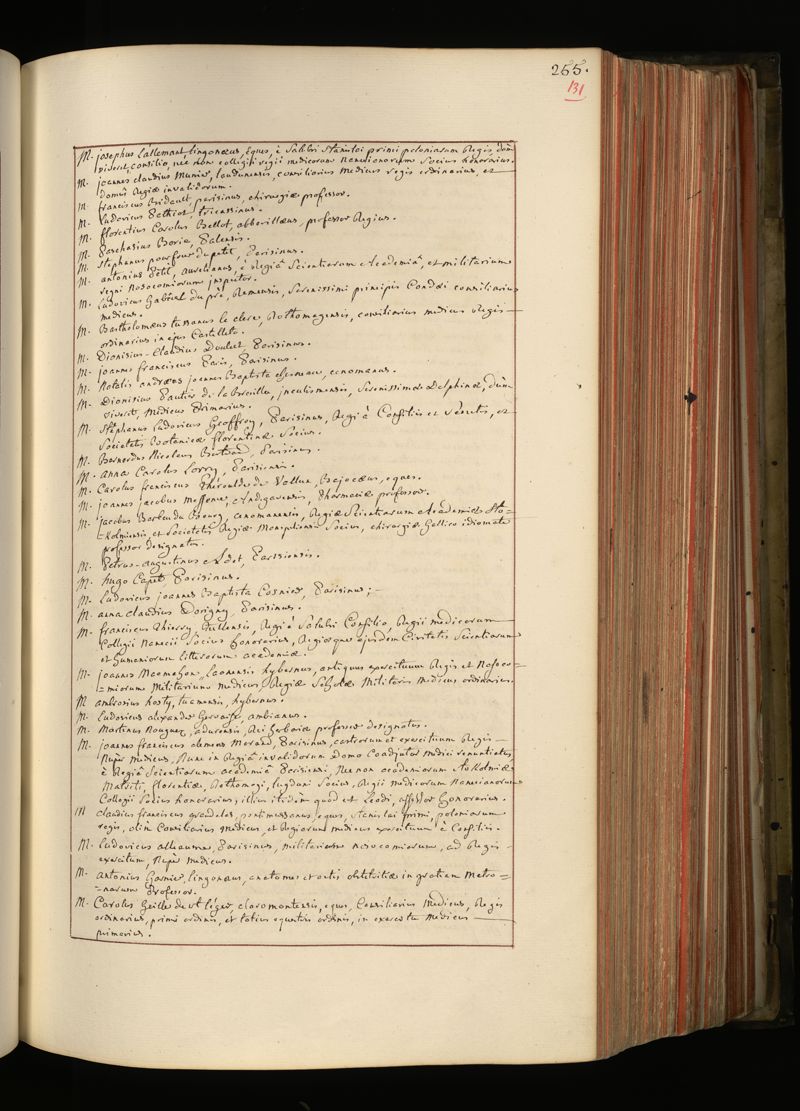 255.
131
M. josephus Lallemant, lingonæus, Eques, è Salubri Stanislai primi poloniarum Regis dùm
viveret, consilio, nec non collegii regii medicorum nanceianorum Socius honorarius.
M. joannes claudius Munier, laudunensis, consiliarius medicus regis ordinarius, et
domûs Regiæ invalidorum.
M. franciscus Bidault, parisinus, chirurgiæ professor.
M. Ludovicus Pethiot, tricassinus.
M. florentius Carolus Bellot, abbavillæus, professor Regius.
M. Paschasius Borie, Palensis.
M. Stephanus pourfour du petit, Parisinus.
M. antonius Petit, aurelianus, è Regiâ Scientiarum Academiâ, et militarium
regni Nosocomiorum inspector.
M. Ludovicus Gabriel dupré, Remensis, Serenissimi principis Condæi consiliarius
medicus.
M. Bartholomæus tussanus le clerc, Rothomagensis, consiliarius medicus Regis
ordinarius in ejus Castelleto.
M. Dionisius-Claudius Doulcet Parisinus.
M. joannes franciscus Paris, Parisinus.
M. Natalis andræas joannes Baptista chesneau, cenomanus.
M. Dionisius Gautier de la breuille, inculismensis, Serenissimæ Delphinæ, dùm
viveret, Medicus Primarius.
M. Stephanus Ludovicus Geoffroy, Parisinus, Regi à Consiliis et Secretis, et
Societatis Botanicæ florentinæ Socius.
M. Bernardus Nicolaus Bertrand, Parisinus.
M. anna Carolus Lorry, Parisiensis.
M. Carolus franciscus Théroulde de Vallun, Bajocæus, eques.
M. joannes jacobus Messence, Andegavensis, Pharmaciæ professor.
M. jacobus Barbeu du Bourg, cenomanensis, Regiæ Scientiarum Academiæ Sto-
-Kolmiensis, et Societatis Regiæ Monspeliensis Socius, chirurgiæ Gallico idiomate
professor designatus.
M. Petrus-augustinus Adet, Parisiensis.
M. hugo Capet Parisinus.
M. Ludovicus joannes Baptista Cosnier, Parisinus;
M. anna claudius Dorigny, Parisinus.
M. franciscus Thierry, Tullensis, Regi à Salubri Consilio, Regii medicorum
Collegii Nanceii Socius honorarius, Regiæque ejusdem Civitatis Scientiarum
et humaniorum litterarum academiæ.
M. joannes Macmahon, Laonensis hybernus, antiquus exercituum Regis et Nosoco-
-miorum Militarium Medicus, Regiæ Scholæ Militaris Medicus ordinarius.
M ambrosius hosty, tuamensis, hybernus.
M. Ludovicus alexander Gervaise, ambianus.
M. Martinus Nouguez, adurensis, Rei herbariæ professor designatus.
M. joannes franciscus clemens Morand, Parisinus, castrorum et exercituum Regis
Nuper Medicus, Nunc in Regiâ invalidorum Domo Coadjutor medici renuntiatus,
è Regiâ Scientiarum academiâ Parisiensi, Nec non academiarum Stokolmiæ
Matriti, florentiæ, Rothomagi, lugduni Socius, Regii medicorum Nanceianorum
Collegii Socius honorarius, illius itidem quod est Leodi, assessor honorarius.
M claudius franciscus grandclas, pontimussanus, eques, Stanislai primi, poloniarum
regis, olim Consiliarius medicus, et Regiorum medicus exercituum à Consiliis.
M. Ludovicus alleaume, Parisinus, militarium nosocomiorum, ad Regis
exercitum, Nuper Medicus.
M. antonius Garnier, lingonæus, anatomes et artis obstetritiæ in gratiam Matro-
-narum Professor.
M. Carolus Geille de St léger, claromontensis, eques, Consiliarius Medicus, Regis
ordinarius, primi ordinis, et totius equestris ordinis, in exercitu Medicus
primarius.